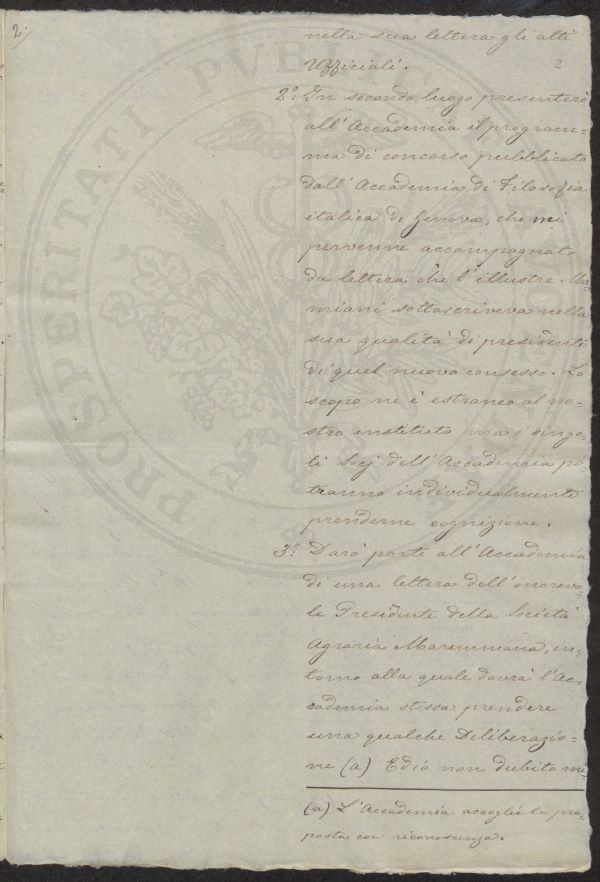 2.
nella sua lettera gli atti
Ufficiali.
2
2° In secondo luogo presenterò
all'Accademia il program=
ma di concorso pubblicato
dall'Accademia di Filosofia
italica di Genova, che mi
pervenne accompagnato
da lettera che l'illustre Ma=
miani sottoscriveva nella
sua qualità di presidente
di quel nuovo consesso. Lo
scopo ne è estraneo al no=
stro instituto ma i singo=
li Socj dell'Accademia po=
tranno individualmente
prenderne cognizione.
3° Darò parte all'Accademia
di una lettera dell'onorevo=
le Presidente della Società
Agraria Maremmana, in=
torno alla quale dovrà l'Ac=
cademia stessa prendere
una qualche Deliberazio=
ne (a) Ed io non dubito mi=
(a) L'Accademia accoglie la pro=
posta con riconoscenza.
PROSPERITATI PVBLICAE